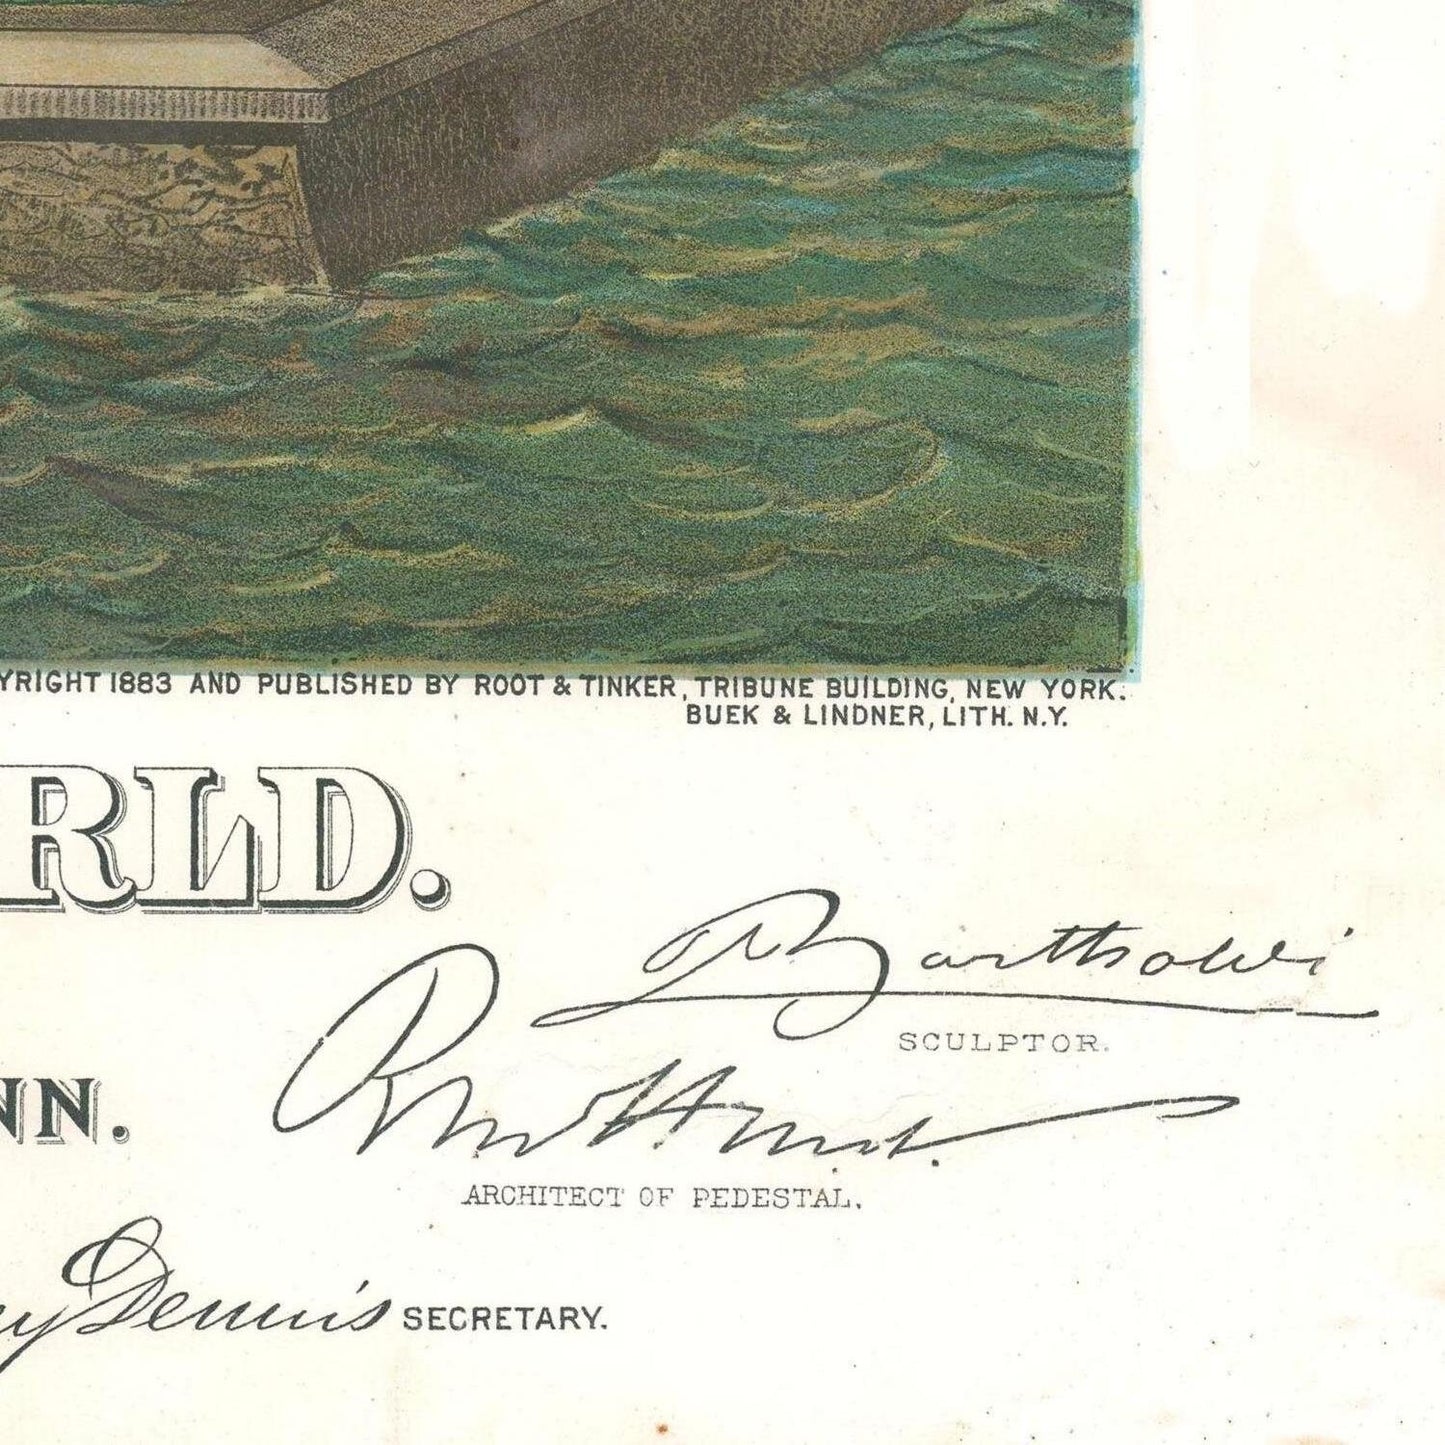 YRIGHT 1883 AND PUBLISHED BY ROOT & TINKER, TRIBUNE BUILDING, NEW YORK.
BUEK & LINDNER, LITH. N.Y.
RLD.
A Bartholdi
SCULPTOR.
NN.
R M Hunt.
ARCHITECT OF PEDESTAL.
y Dennis SECRETARY.